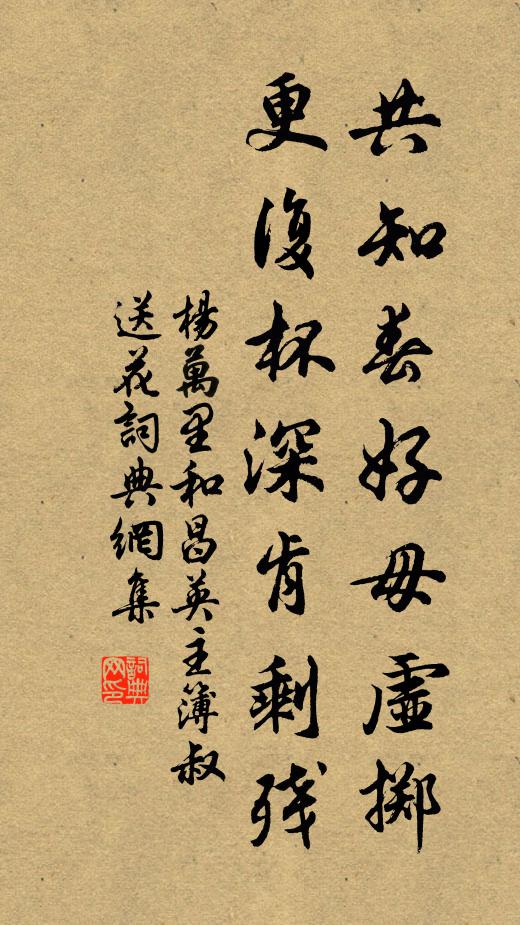 共知春好毋虛擲
更復杯深肯剩殘
楊萬里和昌英主簿叔
送花詞典網集
詞典網印